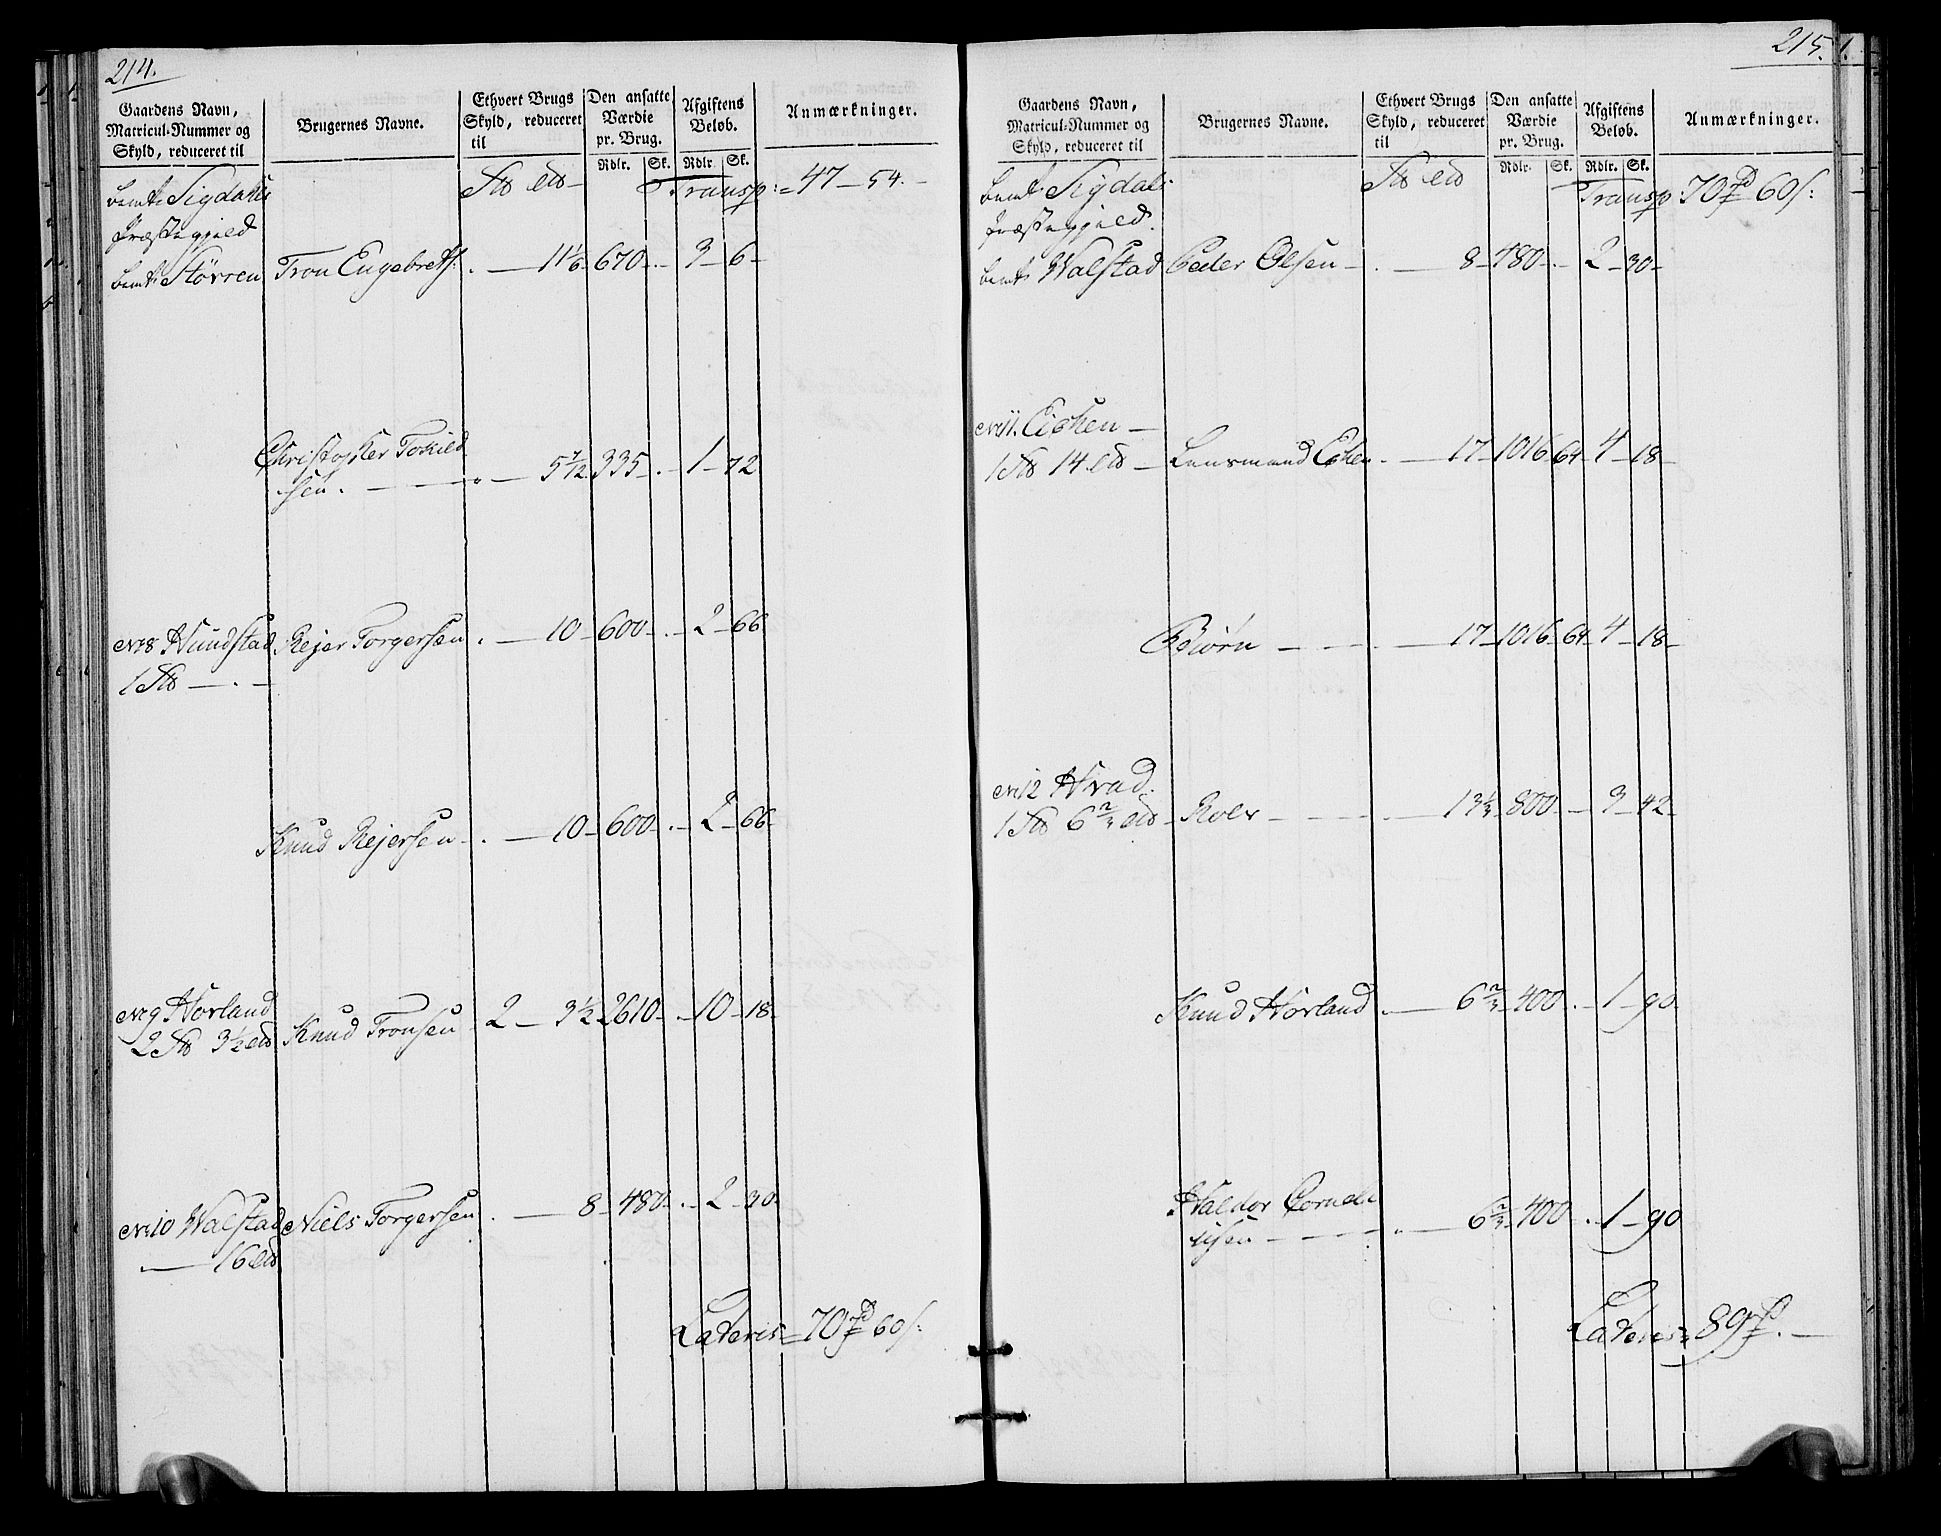 214.
Gaardens Navn, Matricul-Nummer og Skyld, reduceret til | Brugernes Navne. | Ethvert Brugs Skyld, reduceret til | Den ansatte Værdie pr. Brug. Rdlr. Sk. | Afgiftens Beløb. Rdlr. Sk. | Anmærkninger.
bemte Sigdahls
Transp: = 47 – 54. –
Præstegjeld
bemte Störren Tron Engebrets: . — 11 1/6 – 670 – . – 3 – 6 –
Christopher Tokild
sen . — . — 5 7/12 335 – . – 1 – 72
No 8 Hundstad Rejer Torgersen . — 10 – 600 – . – 2 – 66
1
Knud Rejersen – . — 10 – 600 – . – 2 – 66 –
No 9 Horland
Knud Tronsen 2 — 3 1/2 2610 – . – 10 – 18
2 3 1/2
No 10 Walstad Niels Torgersen . — 8 – 480 – . – 2 – 30 –
— 16
Lateris = 70 60 s:
215.
Gaardens Navn, Matricul-Nummer og Skyld, reduceret til | Brugernes Navne. | Ethvert Brugs Skyld, reduceret til | Den ansatte Værdie pr. Brug. Rdlr. Sk. | Afgiftens Beløb. Rdlr. Sk. | Anmærkninger.
bemte Sigdals
Transp 70 60 s:
Præstegjeld.
bemte Walstad Peder Olsen – . — 8 – 480 – . – 2 – 30 –
No 11. Eichen —
1 14 — Lensmand Echen . — 17 – 1016 64 4 – 18 –
Biørn — . — 17 – 1016 – 64 – 4 – 18 –
No 12 Hvad:
1 6 2/3 – Rolv — 13 1/3 – 800 – – 3 – 42 –
Knud Horland . — 6 2/3 – 400 . – 1 – 90 –
Haldor Corneli
usen — . — 6 2/3 – 400 . – 1 – 90
Lateris = 89 . —